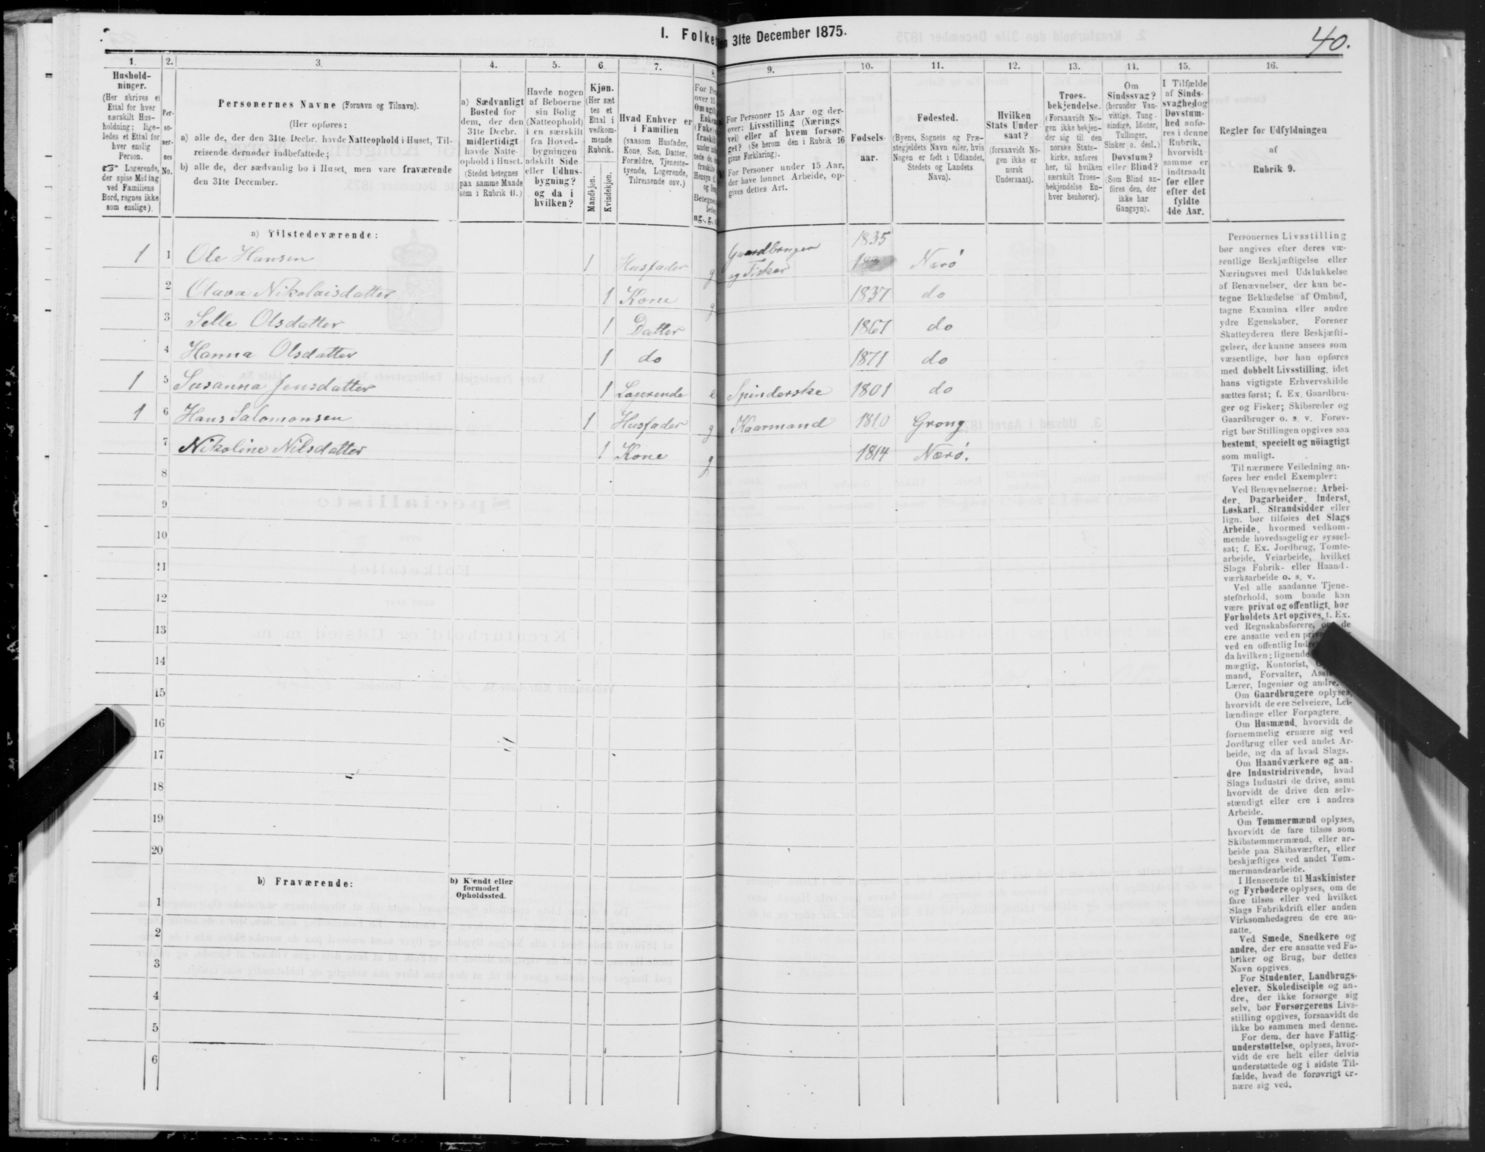 I. Folke
en 31te December 1875.
40.
1.
Hushold-
ninger.
(Her skrives et
Ettal for hver
særskilt Hus-
holdning; lige-
ledes et Ettal for
hver enslig
Person.
☞ Logerende,
der spise Middag
ved Familiens
Bord, regnes ikke
som enslige)
2.
Per-
so-
ner-
nes
No.
3.
Personernes Navne (Fornavn og Tilnavn).
(Her opføres:
a) alle de, der den 31te Decbr. havde Natteophold i Huset, Til-
reisende derunder indbefattede;
b) alle de, der sædvanlig bo i Huset, men vare fraværende
den 31te December.
4.
a) Sædvanligt
Bosted for
dem, der den
31te Decbr.
midlertidigt
havde Natte-
ophold i Huset.
(Stedet betegnes
paa samme Maade
som i Rubrik 11.)
5.
Havde nogen
af Beboerne
sin Bolig
(Natteophold)
i en særskilt
fra Hoved-
bygningen
adskilt Side
eller Udhus-
bygning?
og da i
hvilken?
6.
Kjøn.
(Her sæt-
tes et
Ettal i
vedkom-
mende
Rubrik.
Mandkjøn.
Kvindekjøn.
7.
Hvad Enhver er
i Familien
(saasom Husfader,
Kone, Søn, Datter,
Forældre, Tjeneste-
tyende, Logerende,
Tilreisende osv.)
8
9.
For Personer 15 Aar og der-
over: Livsstilling (Nærings-
vei) eller af hvem forsør-
get? (Se herom den i Rubrik 16
givne Forklaring).
For Personer under 15 Aar,
der have lønnet Arbeide, op-
gives dettes Art.
10.
Fødsels-
aar.
11.
Fødested.
(Byens, Sognets og Præ-
stegjeldets Navn eller, hvis
Nogen er født i Udlandet,
Stedets og Landets
Navn).
12.
Hvilken
Stats Under-
saat?
(forsaavidt No-
gen ikke er
norsk
Undersaat).
13.
Troes-
bekjendelse.
(Forsaavidt No-
gen ikke bekjen-
der sig til den
norske Stats-
kirke, anføres
her, til hvilken
særskilt Troes-
bekjendelse En-
hver henhører).
14.
Om
Sindssvag?
(herunder Van-
vittige, Tung-
sindige, Idioter,
Tullinger,
Sinker o. desl.)
Døvstum?
eller Blind?
(Som Blind an-
føres den, der
ikke har
Gangsyn).
15.
I Tilfælde
af Sinds-
svaghed og
Døvstum-
hed anfø-
res i denne
Rubrik,
hvorvidt
samme er
indtraadt
før eller
efter det
fyldte
4de Aar.
16.
Regler for Udfyldningen
af
Rubrik 9.
a) Tilstedeværende:
1 1 Ole Hansen 1 Husfader g Gaardbruger og Fisker 1835 Nærø
2 Olava Nikolaisdatter 1 Kone g 1837 do
3 Selle Olsdatter 1 Datter 1867 do
4 Hanna Olsdatter 1 do 1871 do
1 5 Susanna Jensdatter 1 Logerende e Spinderske 1801 do
1 6 Hans Salomonsen 1 Husfader g Kaarmand 1810 Grong
7 Nikoline Nilsdatter 1 Kone g 1814 Nærø.
8
9
10
11
12
13
14
15
16
17
18
19
20
b) Fraværende:
b) Kjendt eller
formodet
Opholdssted.
1
2
3
4
5
6
Personernes Livsstilling
bør angives efter deres væ-
sentlige Beskjæftigelse eller
Næringsvei med Udelukkelse
af Benævnelser, der kun be-
tegne Beklædelse af Ombud,
tagne Examina eller andre
ydre Egenskaber. Forener
Skatteyderen flere Beskjæfti-
gelser, der kunne ansees som
væsentlige, bør han opføres
med dobbelt Livsstilling, idet
hans vigtigste Erhvervskilde
sættes først; f. Ex. Gaardbru-
ger og Fisker; Skibsreder og
Gaardbruger o. s. v. Forøv-
rigt bør Stillingen opgives saa
bestemt, specielt og nøiagtigt
som muligt.
Til nærmere Veiledning an-
føres her endel Exempler:
Ved Benævnelserne: Arbei-
der, Dagarbeider, Inderst,
Løskarl, Strandsidder eller
lign. bør tilføies det Slags
Arbeide, hvormed vedkom-
mende hovedsagelig er syssel-
sat; f. Ex. Jordbrug, Tomte-
arbeide, Veiarbeide, hvilket
Slags Fabrik- eller Haand-
værksarbeide o. s. v.
Ved alle saadanne Tjene-
steforhold, som baade kan
være privat og offentligt, bør
Forholdets Art opgives, f. Ex.
ved Regnskabsførere, om de
ere ansatte ved en
ved en offentlig
da hvilken; lignende
mægtig, Kontorist,
mand, Forvalter,
Lærer, Ingeniør og andre.
Om Gaardbrugere oplyses,
hvorvidt de ere Selveiere, Lei-
lændinge eller Forpagtere.
Om Husmænd, hvorvidt de
fornemmelig ernære sig ved
Jordbrug eller ved andet Ar-
beide, og da af hvad Slags.
Om Haandværkere og an-
dre Industridrivende, hvad
Slags Industri de drive, samt
hvorvidt de drive den selv-
stændigt eller ere i andres
Arbeide.
Om Tømmermænd oplyses,
hvorvidt de fare tilsøs som
Skibstømmermænd, eller ar-
beide paa Skibsværfter, eller
beskjæftiges ved andet Tøm-
mermandsarbeide.
I Henseende til Maskinister
og Fyrbødere oplyses, om de
fare tilsøs eller ved hvilket
Slags Fabrikdrift eller anden
Virksomhedsgren de ere an-
satte.
Ved Smede, Snedkere og
andre, der ere ansatte ved Fa-
briker og Brug, bør dettes
Navn opgives.
For Studenter, Landbrugs-
elever, Skoledisciple og an-
dre, der ikke forsørge sig
selv, bør Forsørgerens Livs-
stilling opgives, forsaavidt de
ikke bo sammen med denne.
For dem, der have Fattig-
understøttelse, oplyses, hvor-
vidt de ere helt eller delvis
understøttede og i sidste Til-
fælde, hvad de forøvrigt er-
nære sig ved.